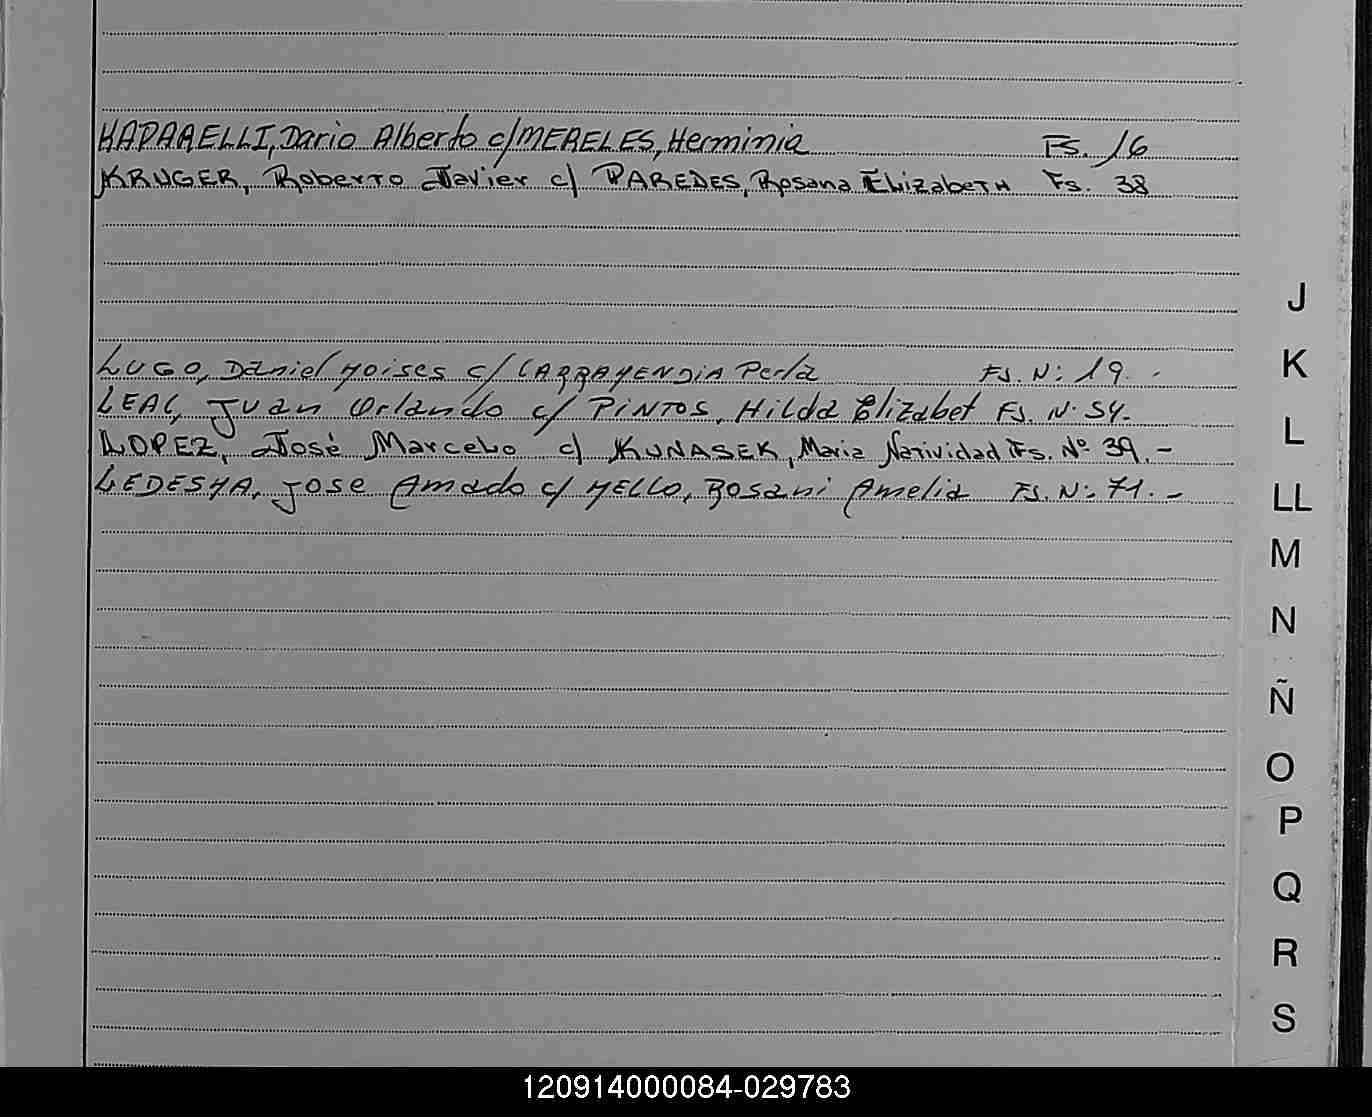 KAPARELLI, Dario Alberto c/ MERELES, Herminia Fs. 16
KRUGER, Roberto Javier c/ PAREDES, Rosana Elizabeth Fs. 38
J
LUGO, Daniel Moises c/ LARRAMENDIA Perla Fs. Nº 19. -
K
LEAL, Juan Orlando c/ PINTOS, Hilda Elizabet Fs. Nº 54.-
L
LOPEZ, José Marcelo c/ KUNASEK, Maria Natividad Fs. Nº 39.-
LEDESMA, Jose Amado c/ MELLO, Rosani Amelia Fs. Nº 71.-
LL
M
N
Ñ
O
P
Q
R
S
120914000084-029783